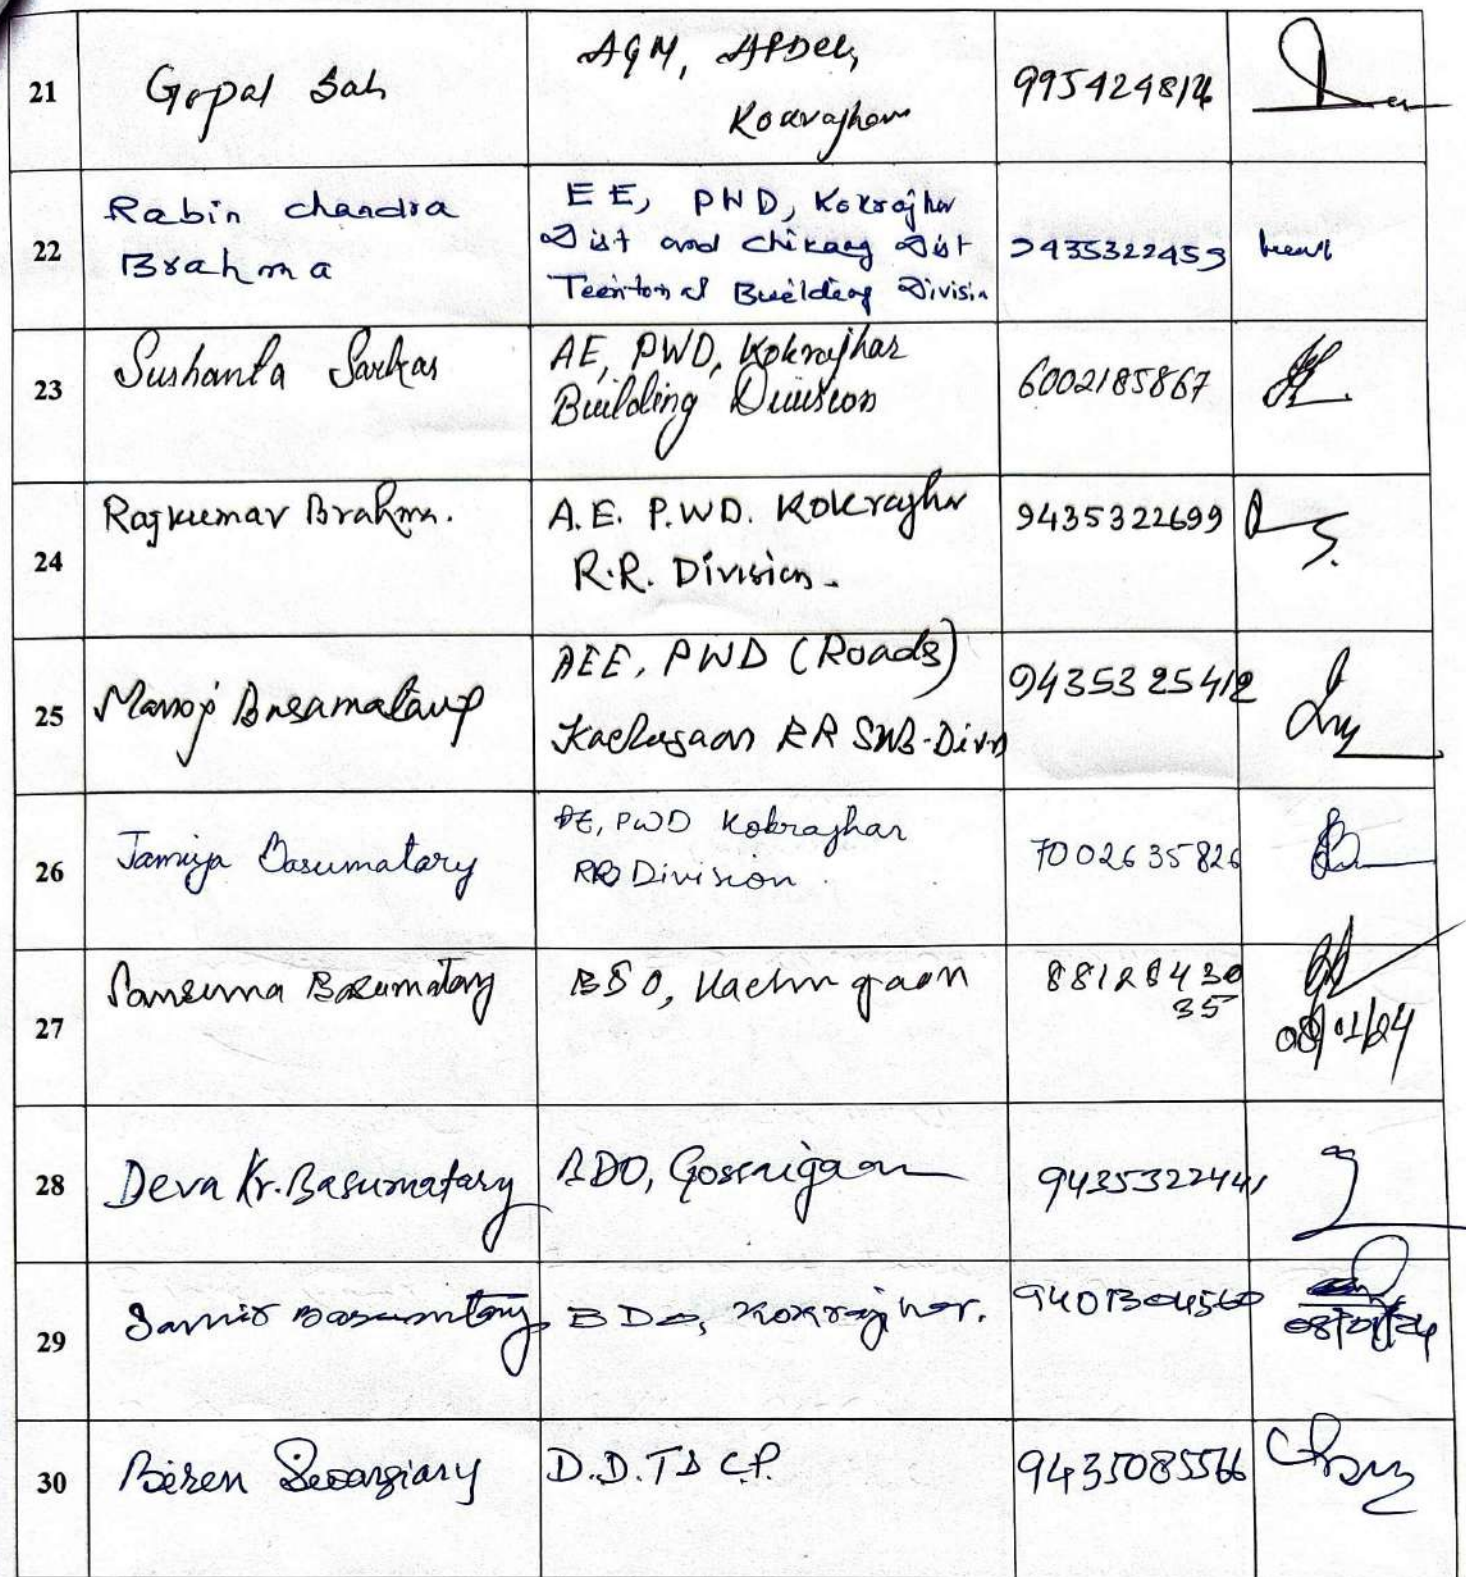 21
Gopal Sah
AGM, APDCL,
Kokrajhar
22
Rabin Chandra
Brahma
EE, PWD, Kokrajhar
Dist and Chirang Dist
Territorial Building Division
9435322459
23
Sushanta Sarkar
AE, PWD, Kokrajhar
Building Division
6002185867
24
Rajkumar Brahma.
A.E. P.W.D. Kokrajhar
R.R. Division.
9435322699
25
Manoj Basumatary
AEE, PWD (Roads)
Kachugaon RR Sub-Divn
9435325412
26
Basumatary
AE, PWD Kokrajhar
RR Division.
7002635826
27
Sansuma Basumatary
BDO, Kachugaon
88128430
35
08/01/24
28
Deva Kr. Basumatary
BDO, Gossaigaon
9435322441
29
Samir Basumatary
BDO, Kokrajhar.
9401304560
08/01/24
30
Biren Swargiary
D.D. T & C.P.
9435085566